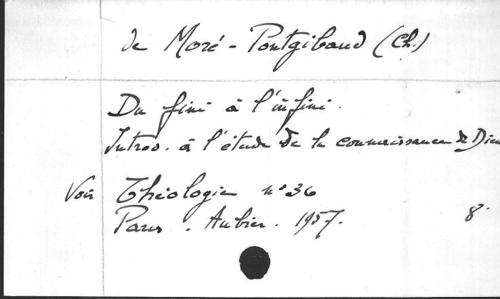 de Moré-Pontgibaud (Ch.)
Du fini à l'infini.
Introd. à l'étude de la connaissance de Dieu
Voir Théologie n° 36
Paris. Aubier. 1957. 8°